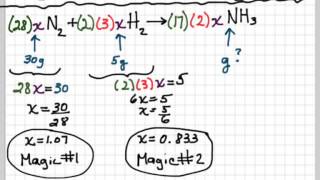 (28)xN₂ + (2)(3)xH₂ → (17)(2)xNH₃
30g 5g g?
28x = 30 (2)(3)x = 5
x = 30/28 6x = 5
x = 5/6
x = 1.07 x = 0.833
Magic#1 Magic#2